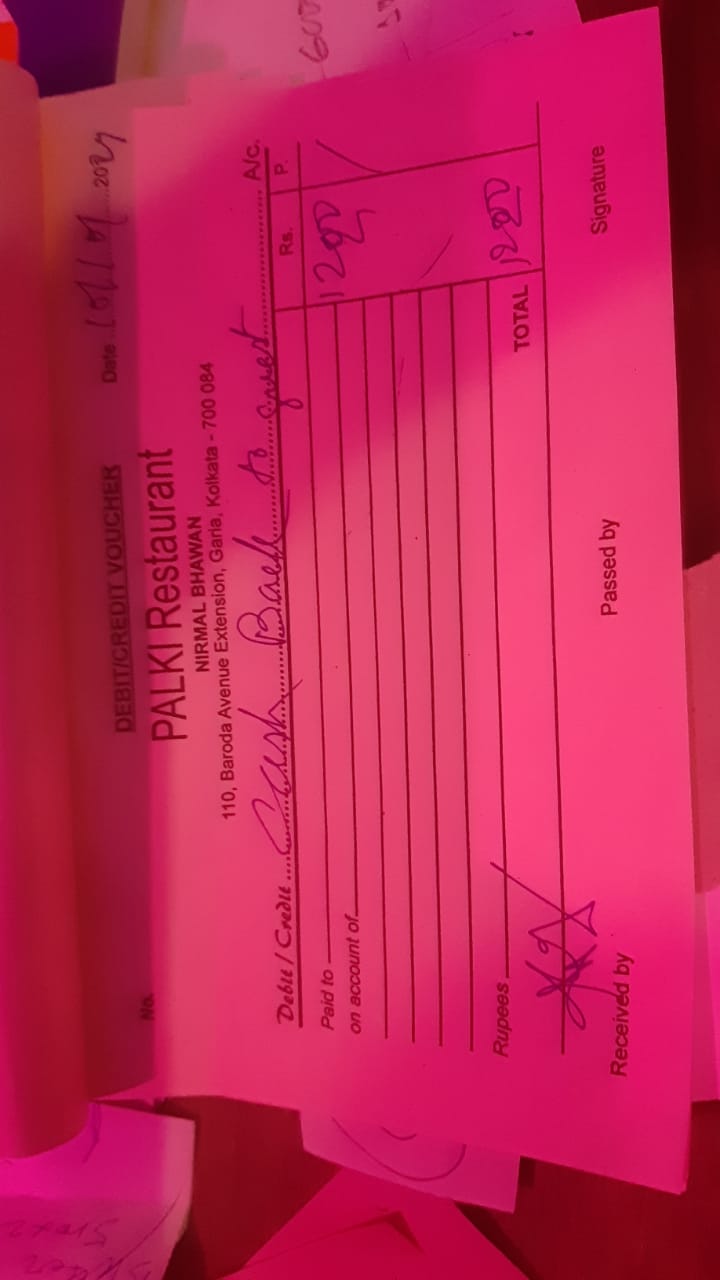 DEBIT/CREDIT VOUCHER
No. Date 20
PALKI Restaurant
NIRMAL BHAWAN
110, Baroda Avenue Extension, Garia, Kolkata - 700 084
Debit / Credit Cash Back to guest A/c.
Rs. P.
Paid to 1200
on account of
Rupees TOTAL 1200
Received by Passed by Signature
600